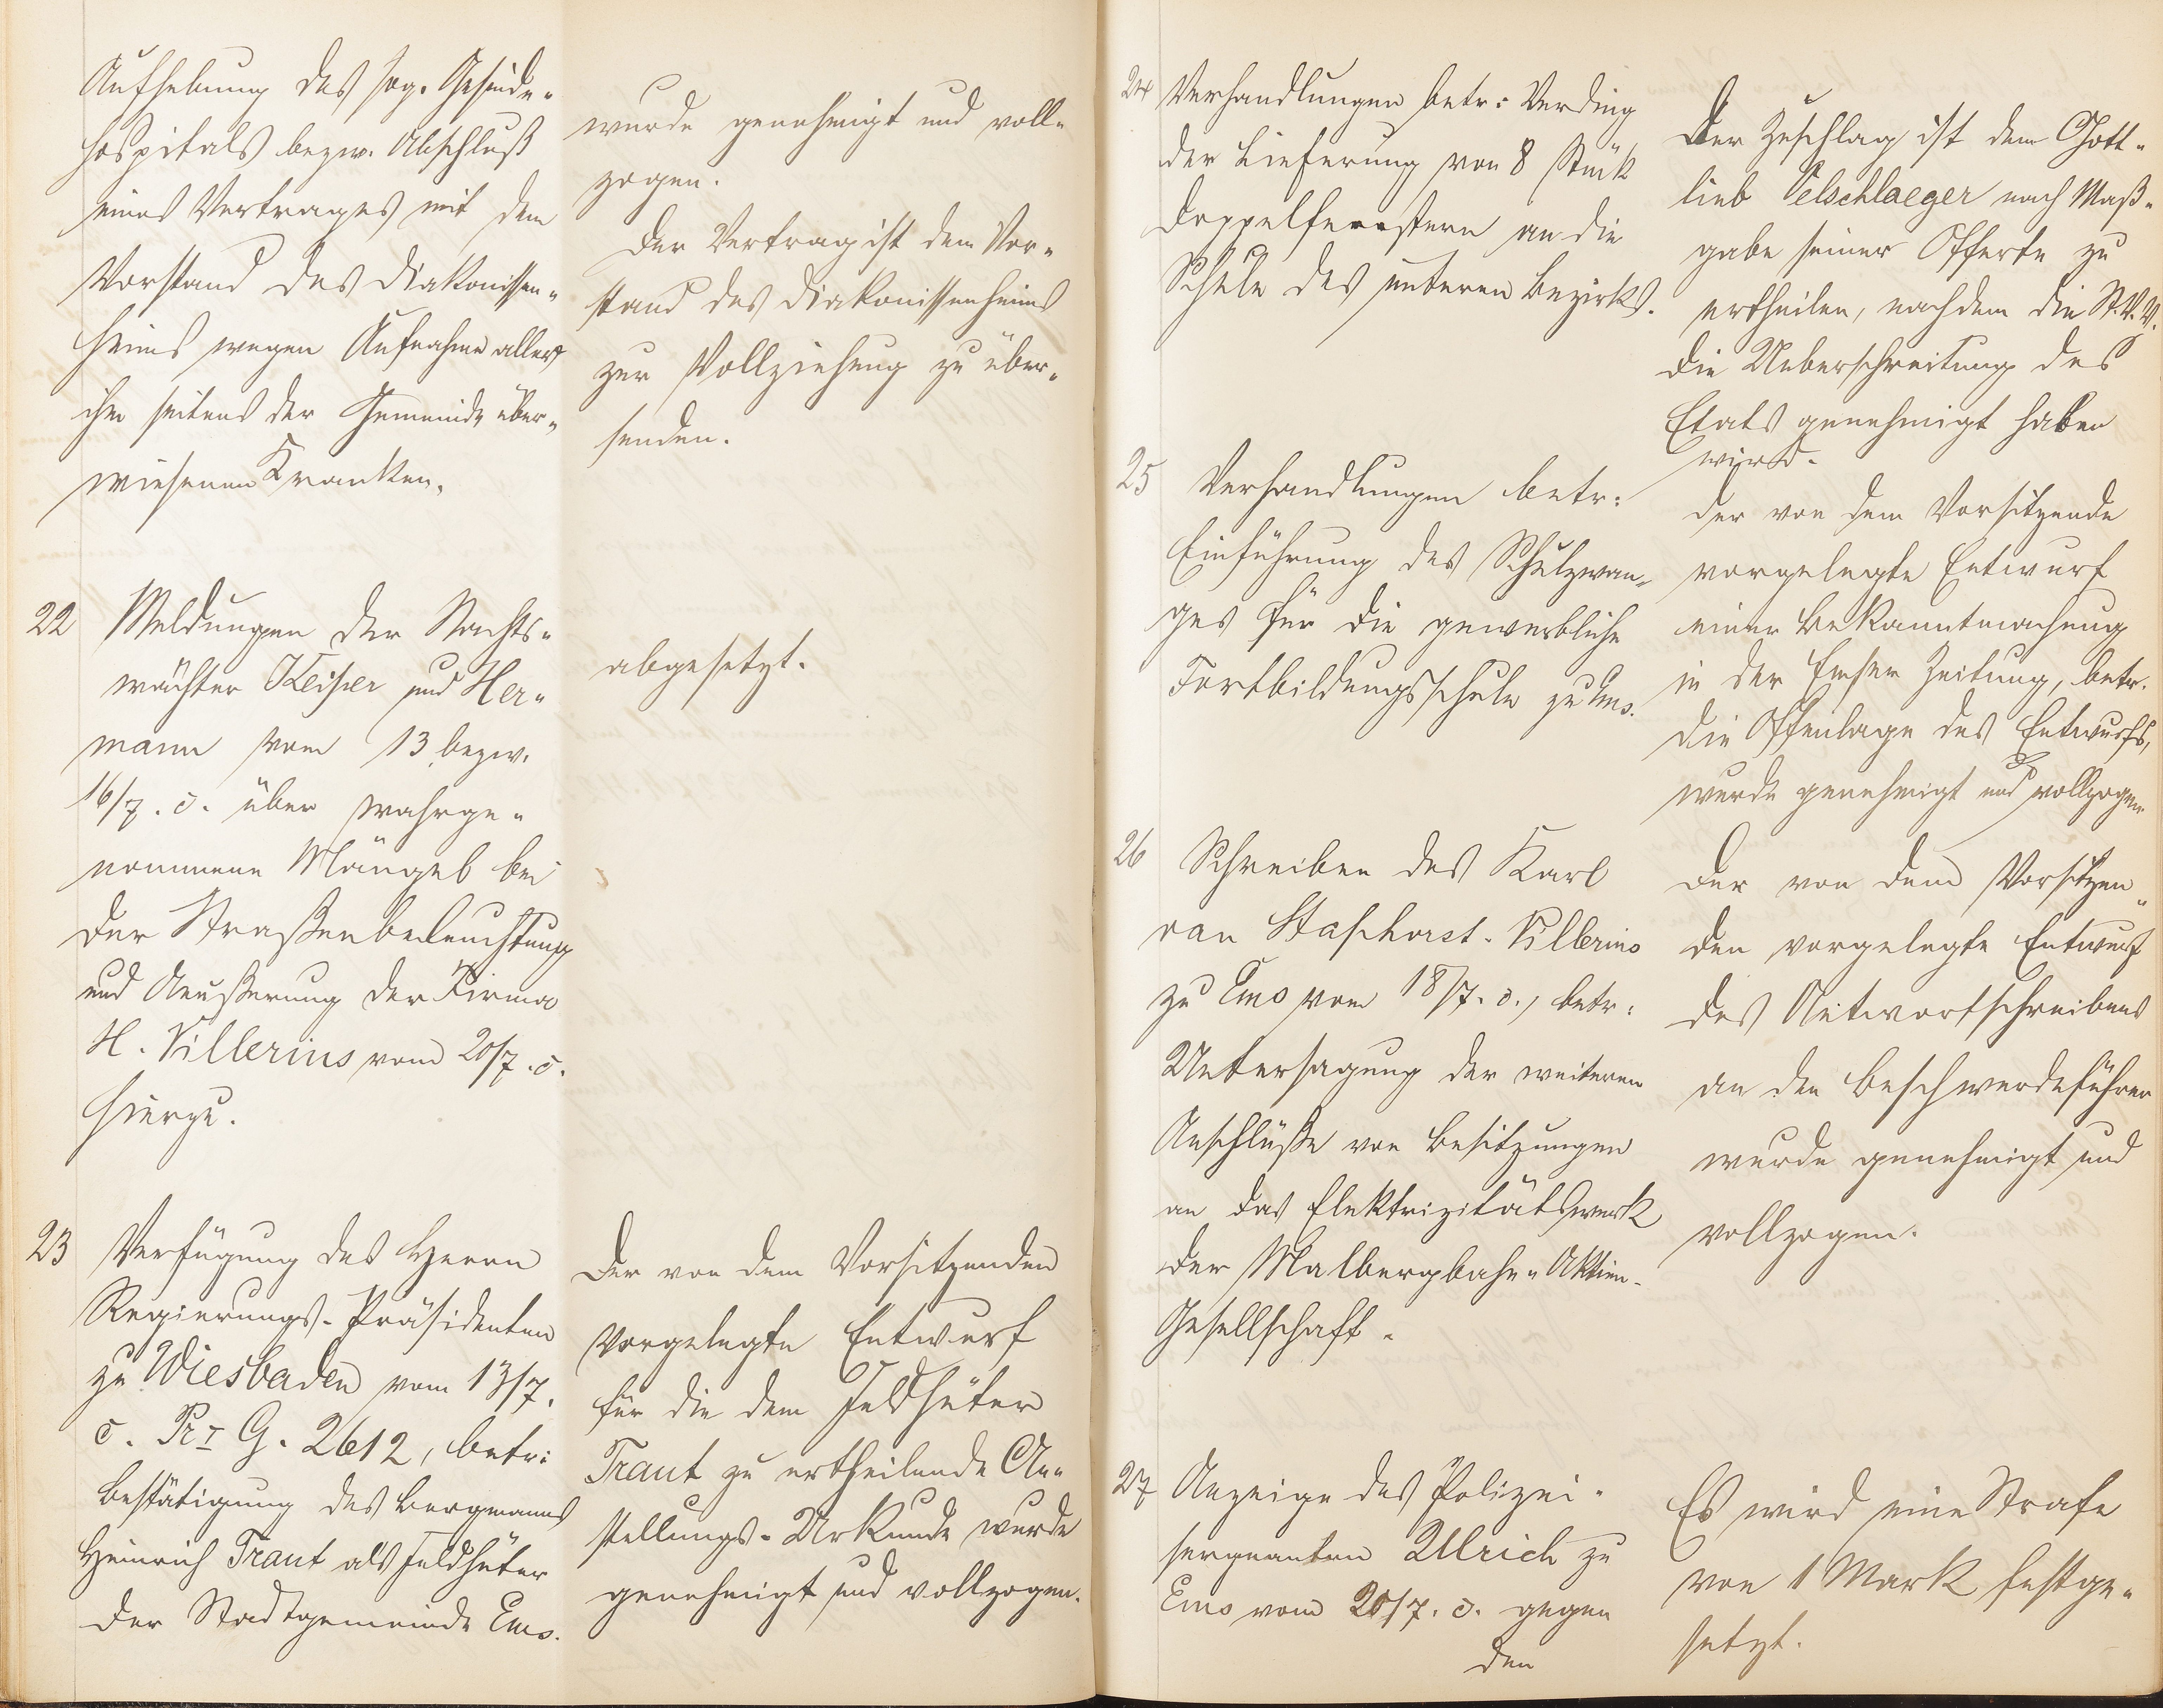 Aufhebung des sog. Gesinde-
hospitals bezw. Abschluß
eines Vertrages mit dem
Vorstand des Diakonissen-
heims wegen Aufnahme aller
ihm seitens der Gemeinde über-
wiesenen Kranken.
wurde genehmigt und voll-
zogen.
Der Vertrag ist dem Vor-
stand des Diakonissenheims
zur Vollziehung zu über-
senden.
22 Meldungen der Nachts-
wächter Keiper und Her-
mann vom 13 bezw.
16/7. c. über wahrge-
nommene Mängel bei
der Straßenbeleuchtung
und Aeußerung der Firma
H. Villerius vom 20/7. c.
hierzu.
abgesetzt.
23 Verfügung des Herrn
Regierungs-Präsidenten
zu Wiesbaden vom 13/7.
c. Pr I G. 2612, betr:
Bestätigung des Bergmanns
Heinrich Traut als Feldhüter
der Stadtgemeinde Ems.
Der von dem Vorsitzenden
vorgelegte Entwurf
für die dem Feldhüter
Traut zu ertheilende An-
stellungs-Urkunde wurde
genehmigt und vollzogen.
24 Verhandlungen betr: Verding
der Lieferung von 8 Stück
Doppelfenstern an die
Schule des unteren Bezirks.
Der Zuschlag ist dem Gott-
lieb Oelschlaeger nach Maß-
gabe seiner Offerte zu
ertheilen, nachdem die St.V.V.
die Ueberschreitung des
Etats genehmigt haben
wird.
25 Verhandlungen betr:
Einführung des Schulzwan-
ges für die gewerbliche
Fortbildungsschule zu Ems.
Der von dem Vorsitzende
vorgelegte Entwurf
einer Bekanntmachung
in der Emser Zeitung, betr.
die Offenlage des Entwurfs,
wurde genehmigt und vollzogen
26 Schreiben des Karl
van Staphorst-Villerius
zu Ems vom 18/7. c., betr:
Untersagung der weiteren
Anschlüße von Besitzungen
an das Elektrizitätswerk
der Malbergbahn-Aktien-
Gesellschaft.
Der von dem Vorsitzen-
den vorgelegte Entwurf
des Antwortschreibens
an den Beschwerdeführer
wurde genehmigt und
vollzogen.
27 Anzeige des Polizei-
sergeanten Ulrich zu
Ems vom 20/7. c. gegen
den
Es wird eine Strafe
von 1 Mark festge-
setzt.